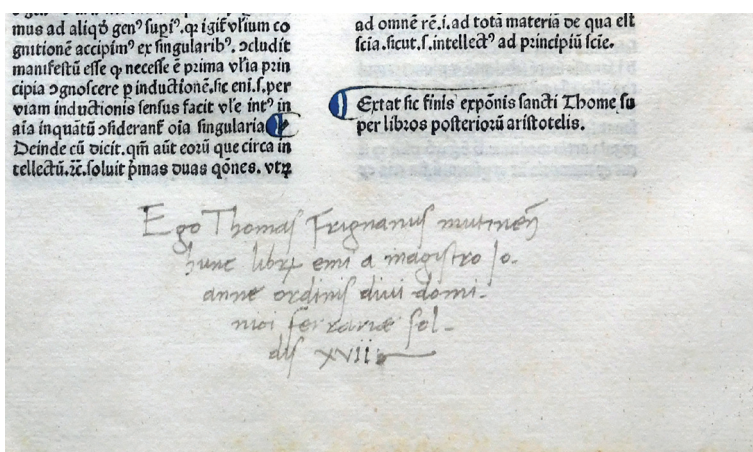 mus ad aliqḋ genꝰ supiꝰ. qꝛ igit᷑ vlium co
gnitionē accipimꝰ ex singularibꝰ. ↄcludit
manifestū esse ꝙ necesse ē prima vlia prin
cipia ↄgnoscere ꝑ inductionē. sic eni. s. per
viam inductionis sensus facit vle intꝰ in
aīa inquātū ↄsiderant᷑ oīa singularia
Deinde cū dicit. qm̄ aūt eorū que circa in
tellectū. ⁊c̄. soluit pͥmas duas qōnes. vtꝝ
ad omnē rē. i. ad totā materiā de qua est
scīa. sicut. s. intellectꝰ ad principiū scīe.
Extat sic finis expōnis sancti Thome su
per libros posteriorū aristotelis.
Ego Thomas Frignanus mutineñ
hunc librꝝ emi a magistro Jo-
anne ordinis diui domi-
nici ferrariæ sol-
dis XVII